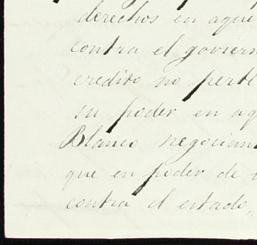 derechos en aque
contra el goviern
credito no perte
su poder en aq
Blanco negocian
que en poder de
contra el estado,